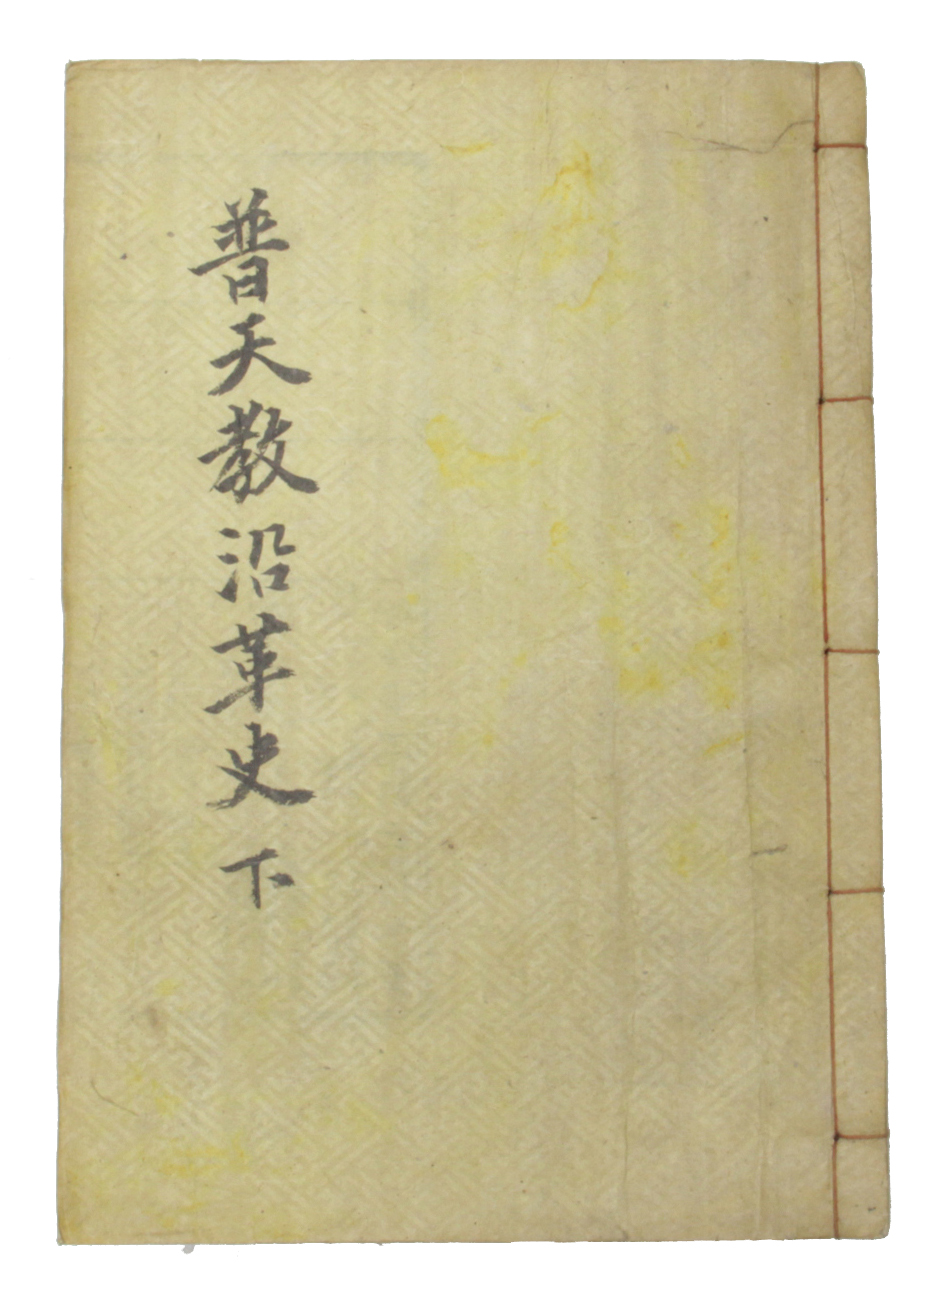 普天教沿革史 下